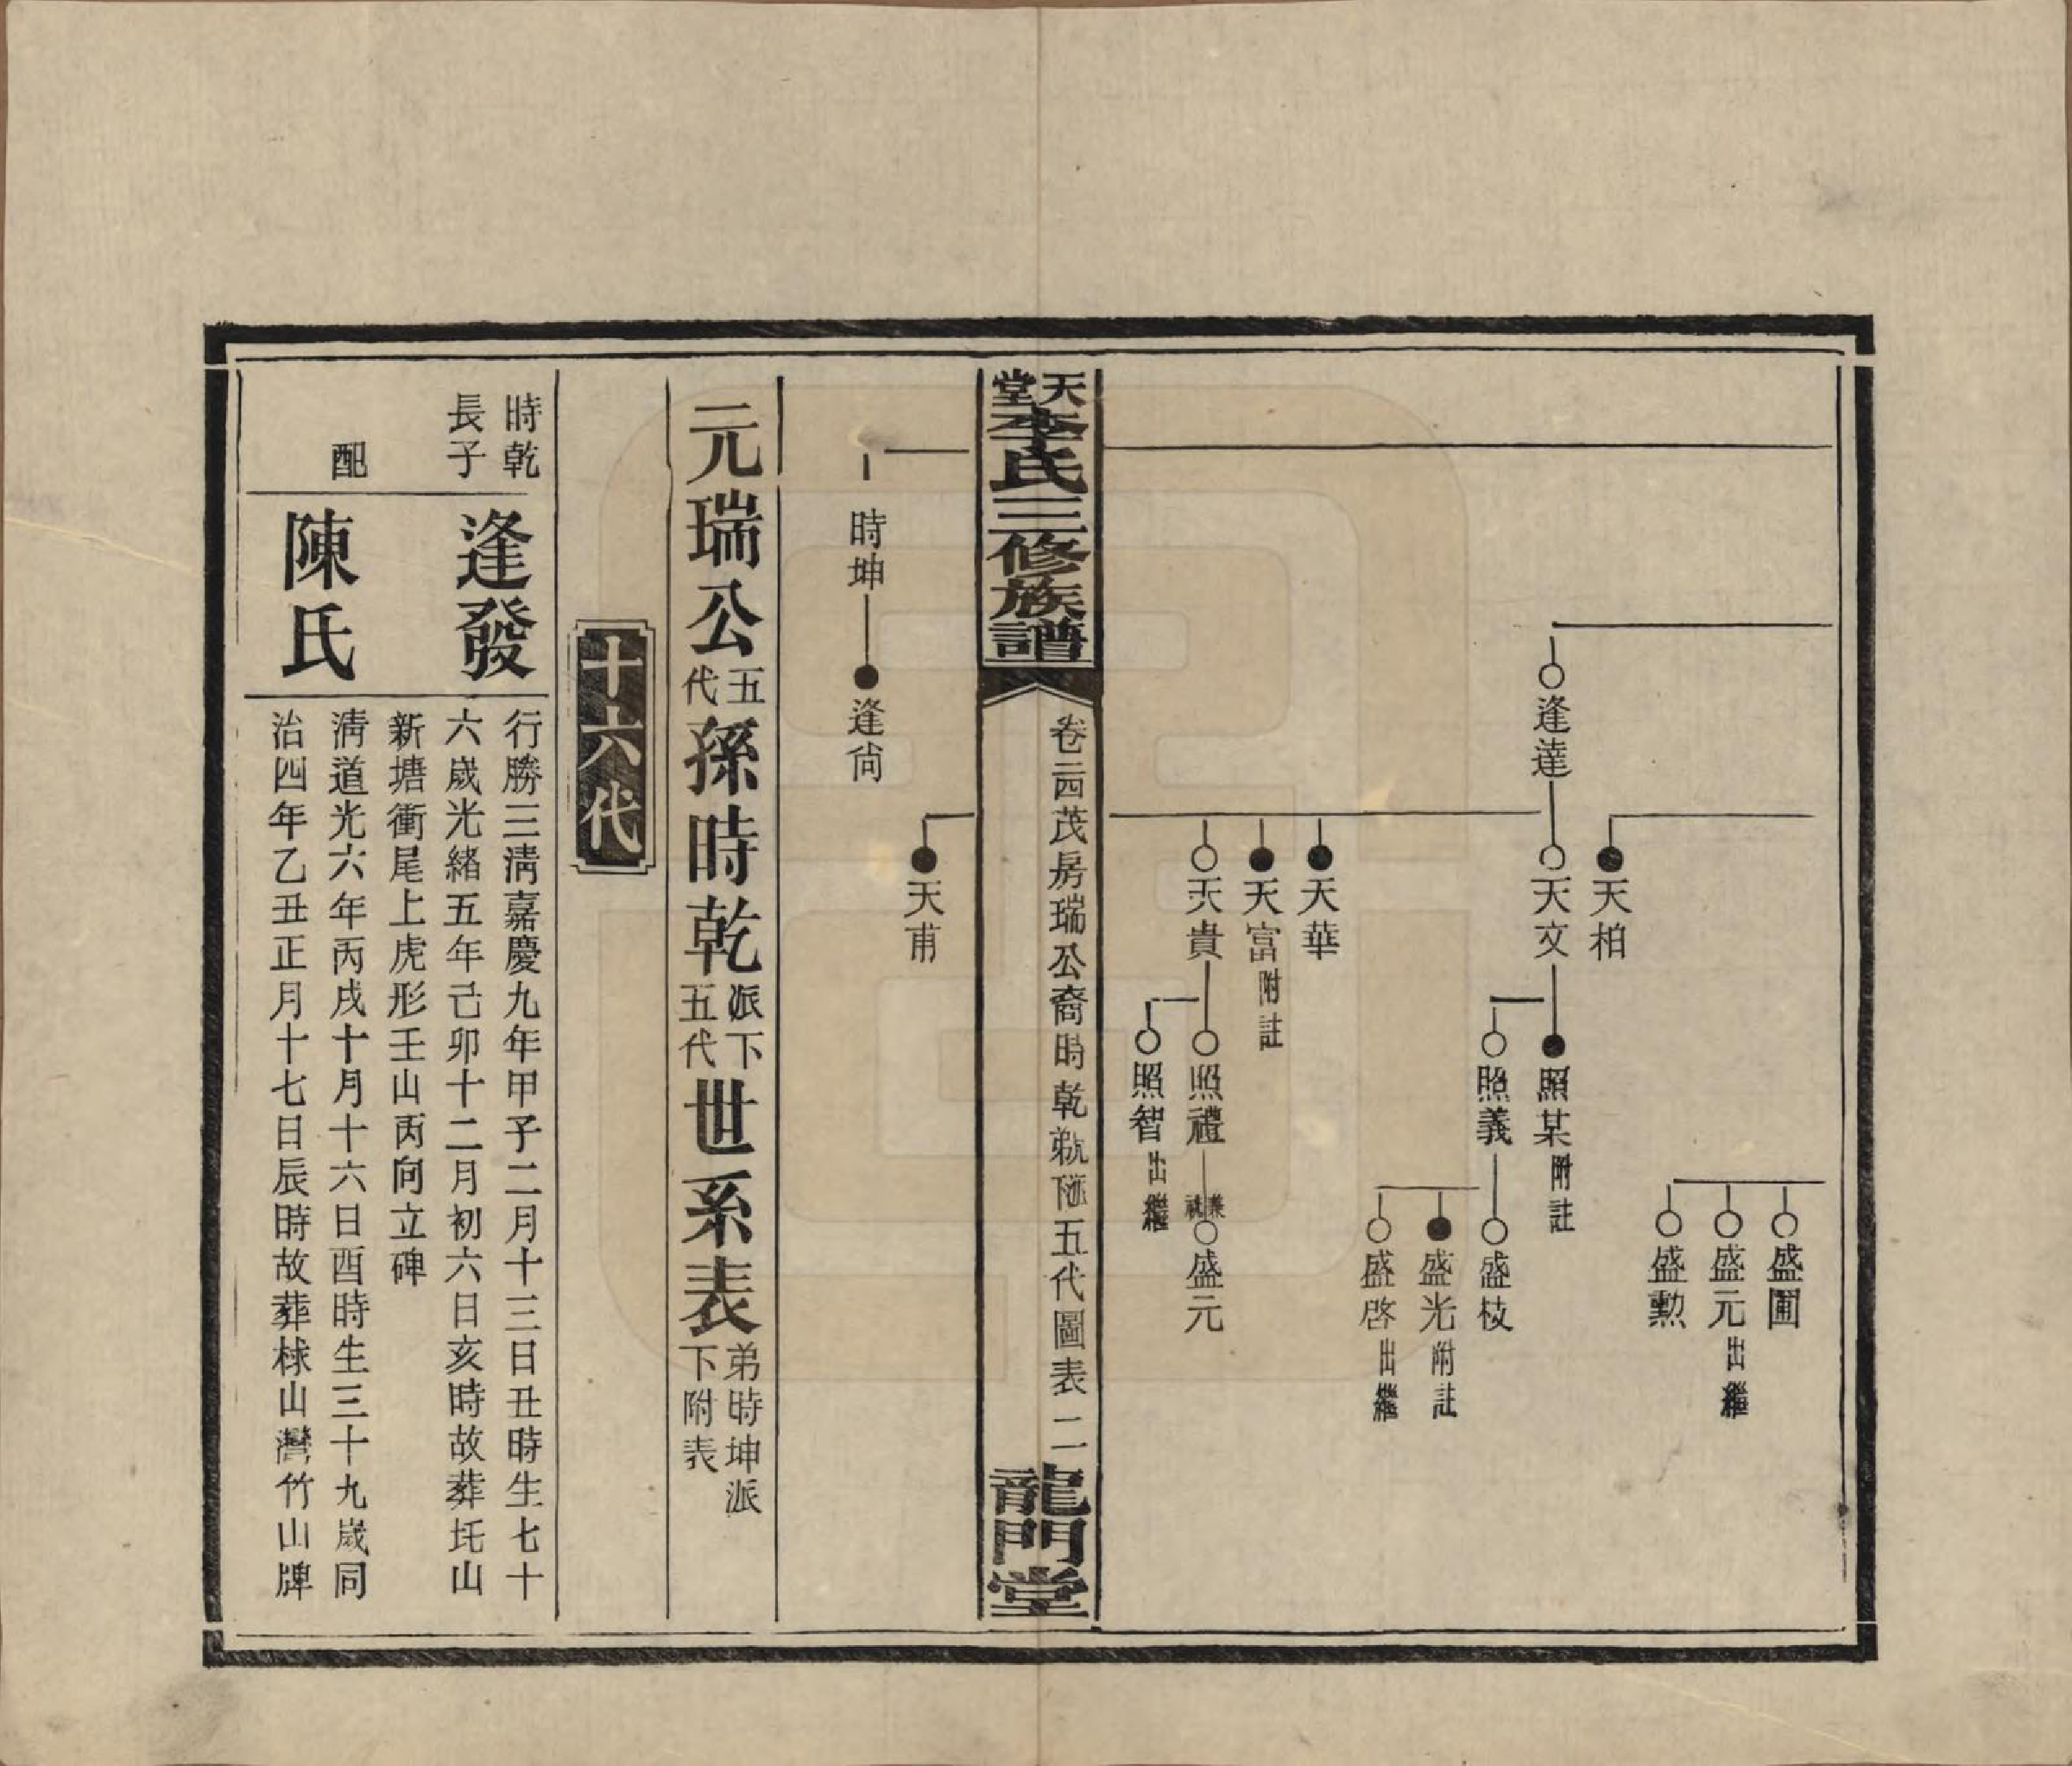 天柏
盛圃
盛元出繼
盛勲
逢達
天文
照某附註
照義
盛枝
盛光附註
盛啓出繼
天華
天富附註
天貴
照禮
兼祧
盛元
照智出繼
天堂李氏三修族譜
卷二四茂房瑞公裔時乾派五代圖表
二
龍門堂
天甫
時坤
逢尙
元瑞公五代孫時乾派下五代世系表弟時坤派下附表
十六代
時乾長子
逢發
行勝三淸嘉慶九年甲子二月十三日丑時生七十
六歲光緒五年己卯十二月初六日亥時故葬圫山
新塘衝尾上虎形壬山丙向立碑
配
陳氏
淸道光六年丙戌十月十六日酉時生三十九歲同
治四年乙丑正月十七日辰時故葬梂山灣竹山牌